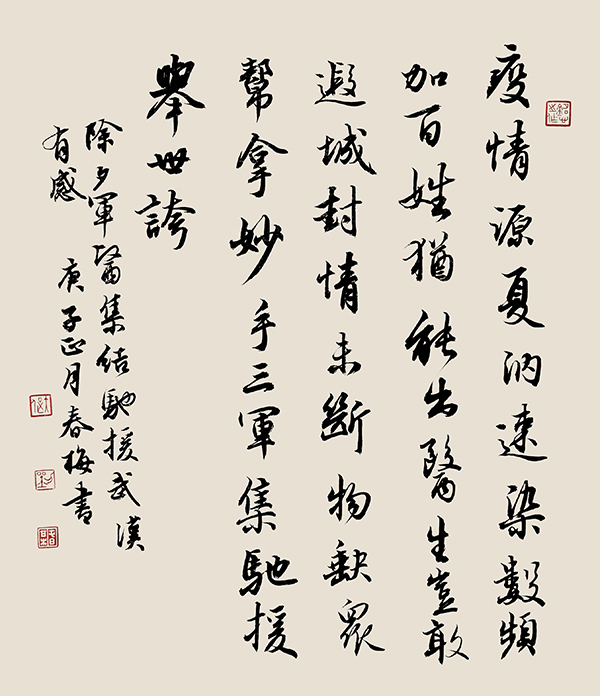 疫情源夏汭速染數頻
加百姓猶能出醫生豈敢
遐城封情未斷物缺眾
幫拿妙手三軍集馳援
舉世誇
除夕軍醫集結馳援武漢
有感 庚子正月春梅書